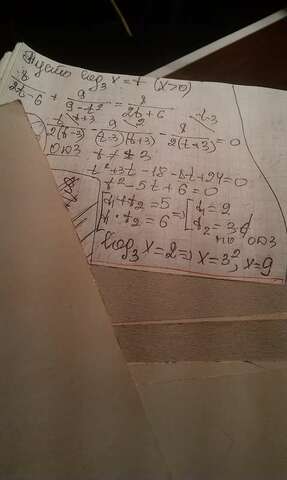 Пусть log₃ x = t (x>0)
t/(2t-6) + 9/(9-t²) = 8/(2t+6)
t/(2(t-3)) - 9/((t-3)(t+3)) - 8/(2(t+3)) = 0
ОДЗ t ≠ ±3
t²+3t-18-8t+24=0
t²-5t+6=0
t₁+t₂=5
t₁·t₂=6 => t₁=2
t₂=3 ∉ ОДЗ
по
log₃ x=2 => x=3², x=9